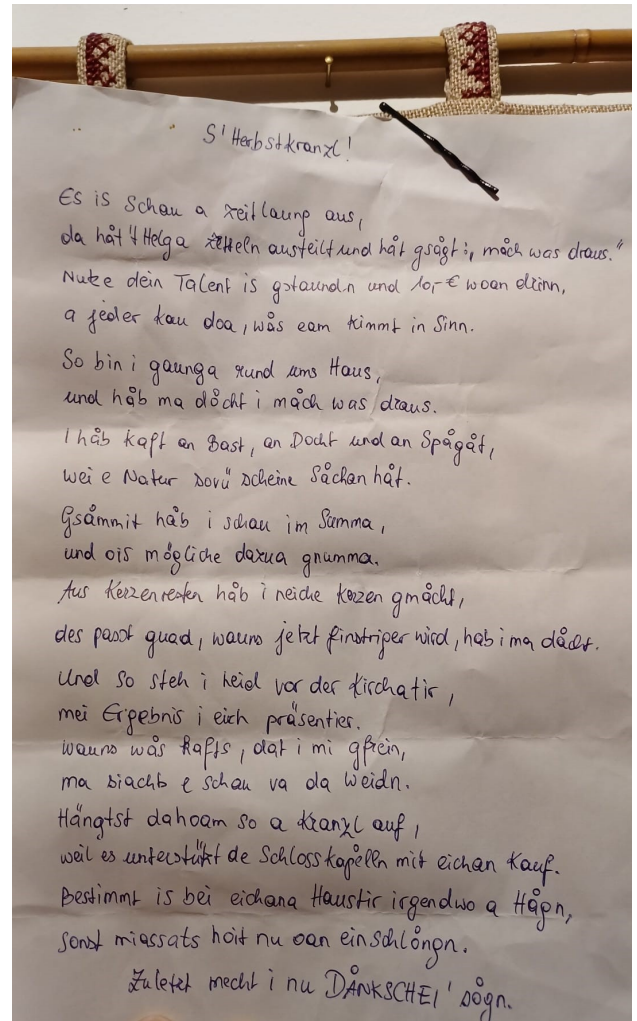 S' Herbstkranzl!
Es is schau a zeitlaung aus,
da håt d' Helga zetteln austeilt und håt gsågt: „måch was draus."
Nutze dein Talent is gstaundn und 10,-€ woan drinn,
a jeder kau doa, wås eam kimmt in Sinn.
So bin i gaunga rund ums Haus,
und håb ma dåcht i måch was draus.
I håb kaft an Bast, an Docht und an Spågåt,
wei e Natur sovü scheine Såchan håt.
Gsåmmit håb i schau im Summa,
und ois mögliche dazua gnumma.
Aus Kerzenresten håb i neiche Kerzen gmåcht,
des passt guad, wauns jetzt finstriger wird, hab i ma dåcht.
Und so steh i heid vor der Kirchatir,
mei Ergebnis i eich präsentier.
wauns wås kafts, dat i mi gfrein,
ma siachts e schau va da weidn.
Hängtst dahoam so a Kranzl auf,
weil es unterstützt de Schlosskapelln mit eichan Kauf.
Bestimmt is bei eichana Haustir irgendwo a Hågn,
sonst miassats hoit nu oan einschlångn.
Zuletzt mecht i nu DÅNKSCHEI' sågn.